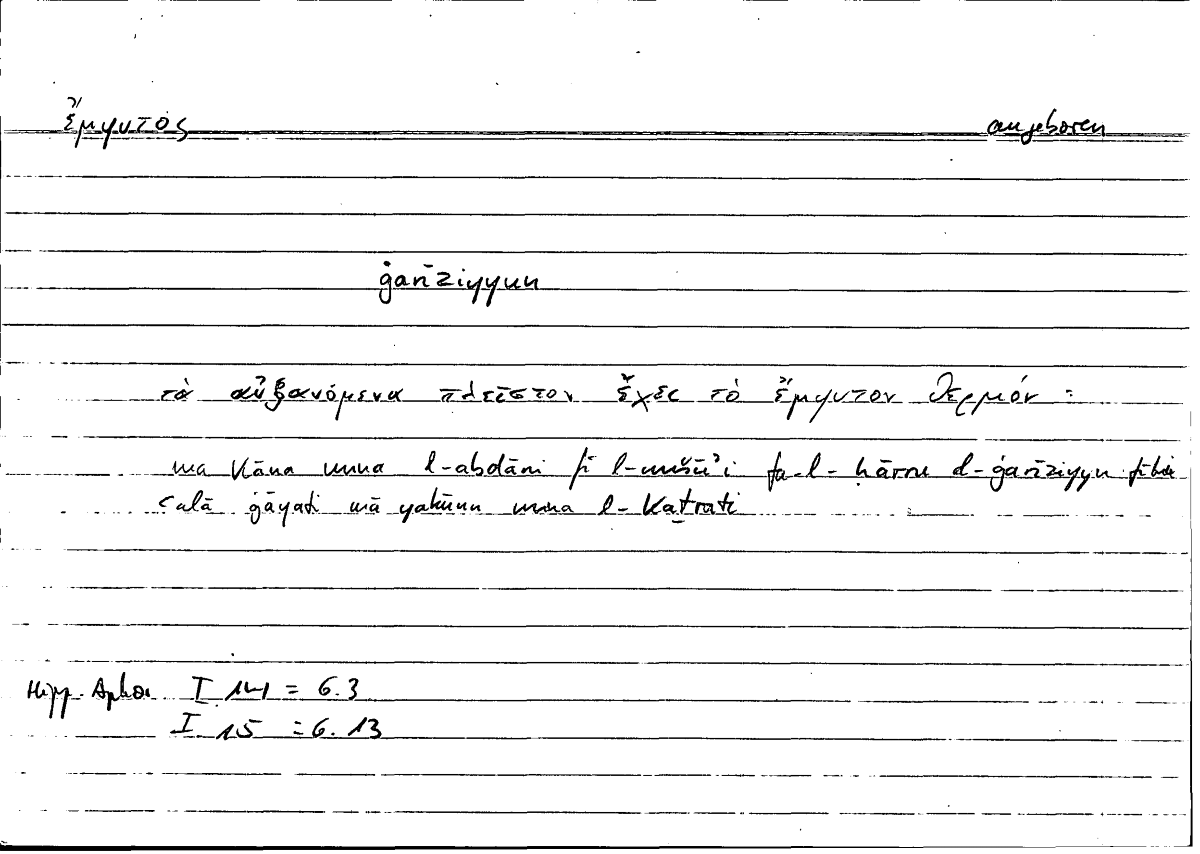 ἔμφυτός angeboren
ġarīziyyun
τὰ αὐξανόμενα πλεῖστον ἔχει τὸ ἔμφυτον θερμόν :
mā kāna mina l-abdāni fī l-nušūʾi fa-l-ḥārru l-ġarīziyyu fīhā
ʿalā ġāyati mā yakūnu mina l-kaṯrati
Hipp. Aphor. I 14 = 6.3
I 15 = 6.13